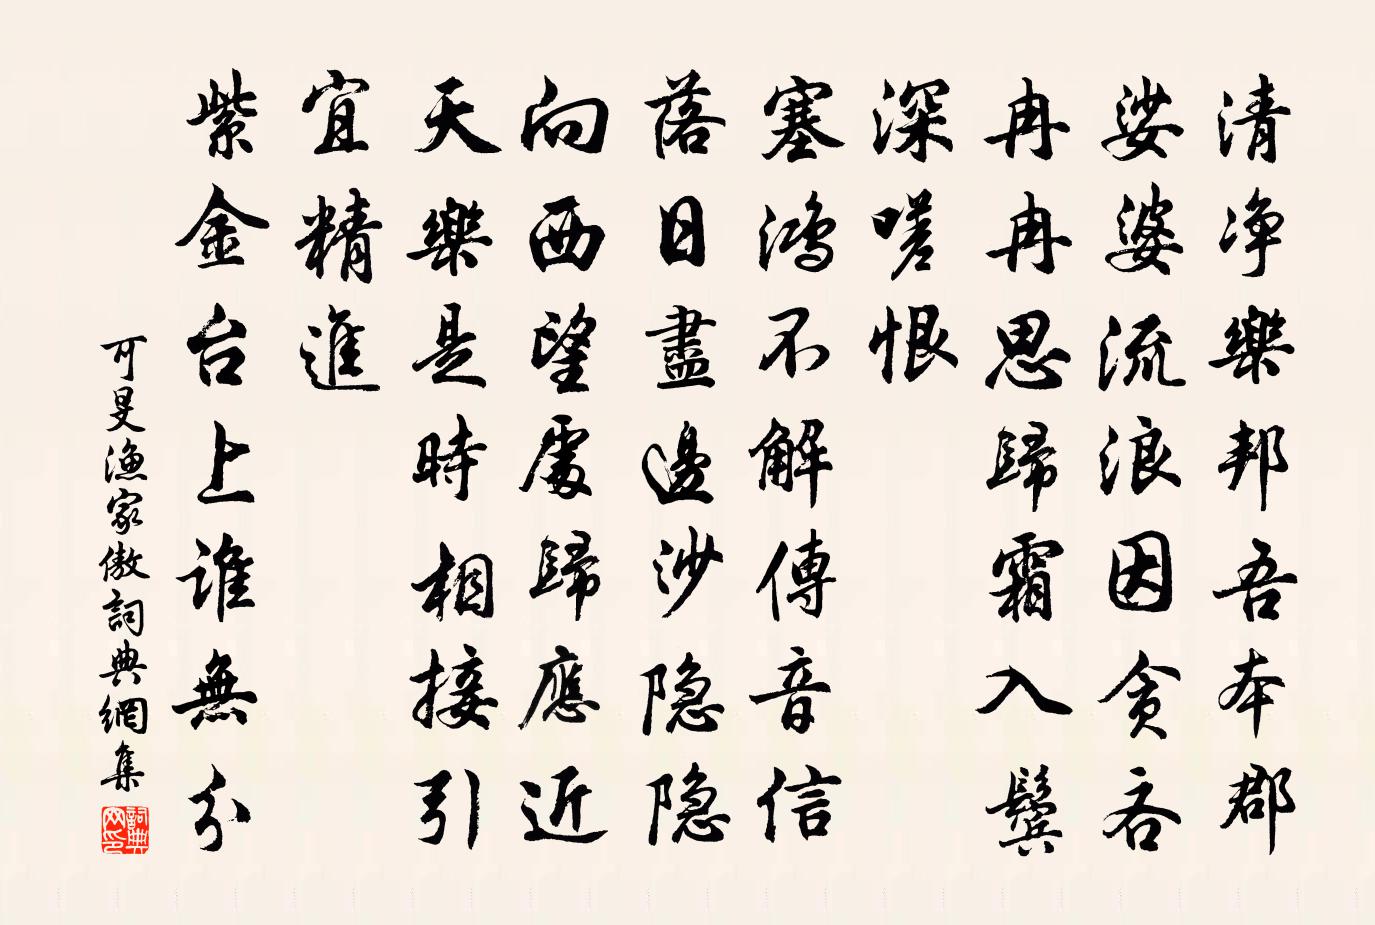 清净樂邦吾本郡
娑婆流浪因貪吝
冉冉思歸霜入鬢
深嗟恨
塞鴻不解傳音信
落日盡邊沙隐隐
向西望處歸應近
天樂是時相接引
宜精進
紫金台上誰無分
可旻漁家傲詞典網集
詞典网印